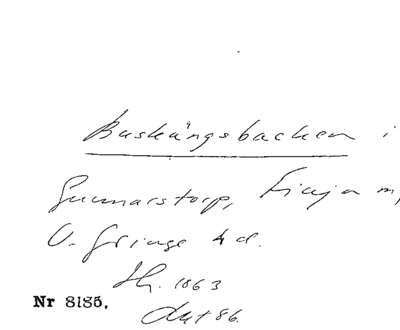 Buskängsbacken i
Gunnarstorp, Finja m,
V. Göinge hd.
Sk. 1863
Nr 8185.
Akt 86.